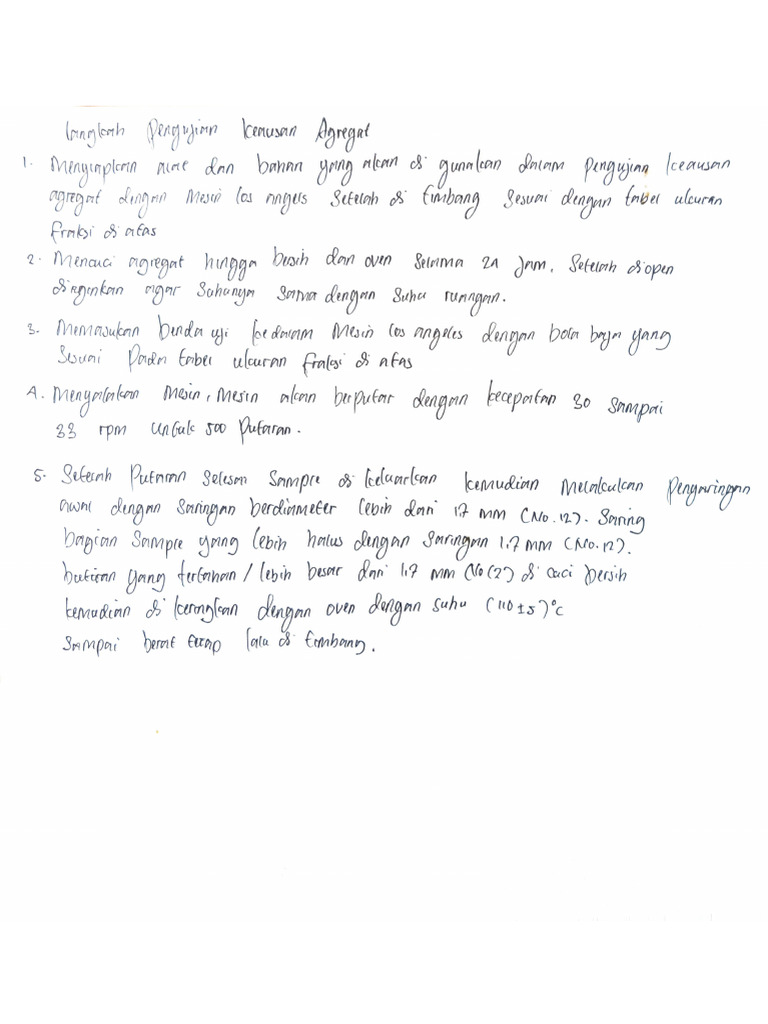 Langkah Pengujian Keausan Agregat
1. Menyiapkan alat dan bahan yang akan di gunakan dalam pengujian keausan
agregat dengan Mesin los angels setelah di timbang sesuai dengan tabel ukuran
fraksi di atas
2. Mencuci agregat hingga bersih dan oven selama 24 Jam. Setelah diopen
diinginkan agar suhunya sama dengan suhu ruangan.
3. Memasukan benda uji kedalam Mesin los angeles dengan bola baja yang
sesuai pada tabel ukuran fraksi di atas
4. Menyalakan Mesin, Mesin akan berputar dengan kecepatan 30 sampai
33 rpm untuk 500 putaran.
5. Setelah Putaran selesai sampel di keluarkan kemudian Melakukan Pengaringan
awal dengan saringan berdiameter lebih dari 1.7 mm (No.12). Saring
bagian sampel yang lebih halus dengan saringan 1.7 mm (No.12).
butiran yang tertahan / lebih besar dari 1.7 mm (No 12) di cuci bersih
kemudian di keringkan dengan oven dengan suhu (110 ± 5)°c
sampai berat tetap lalu di timbang.